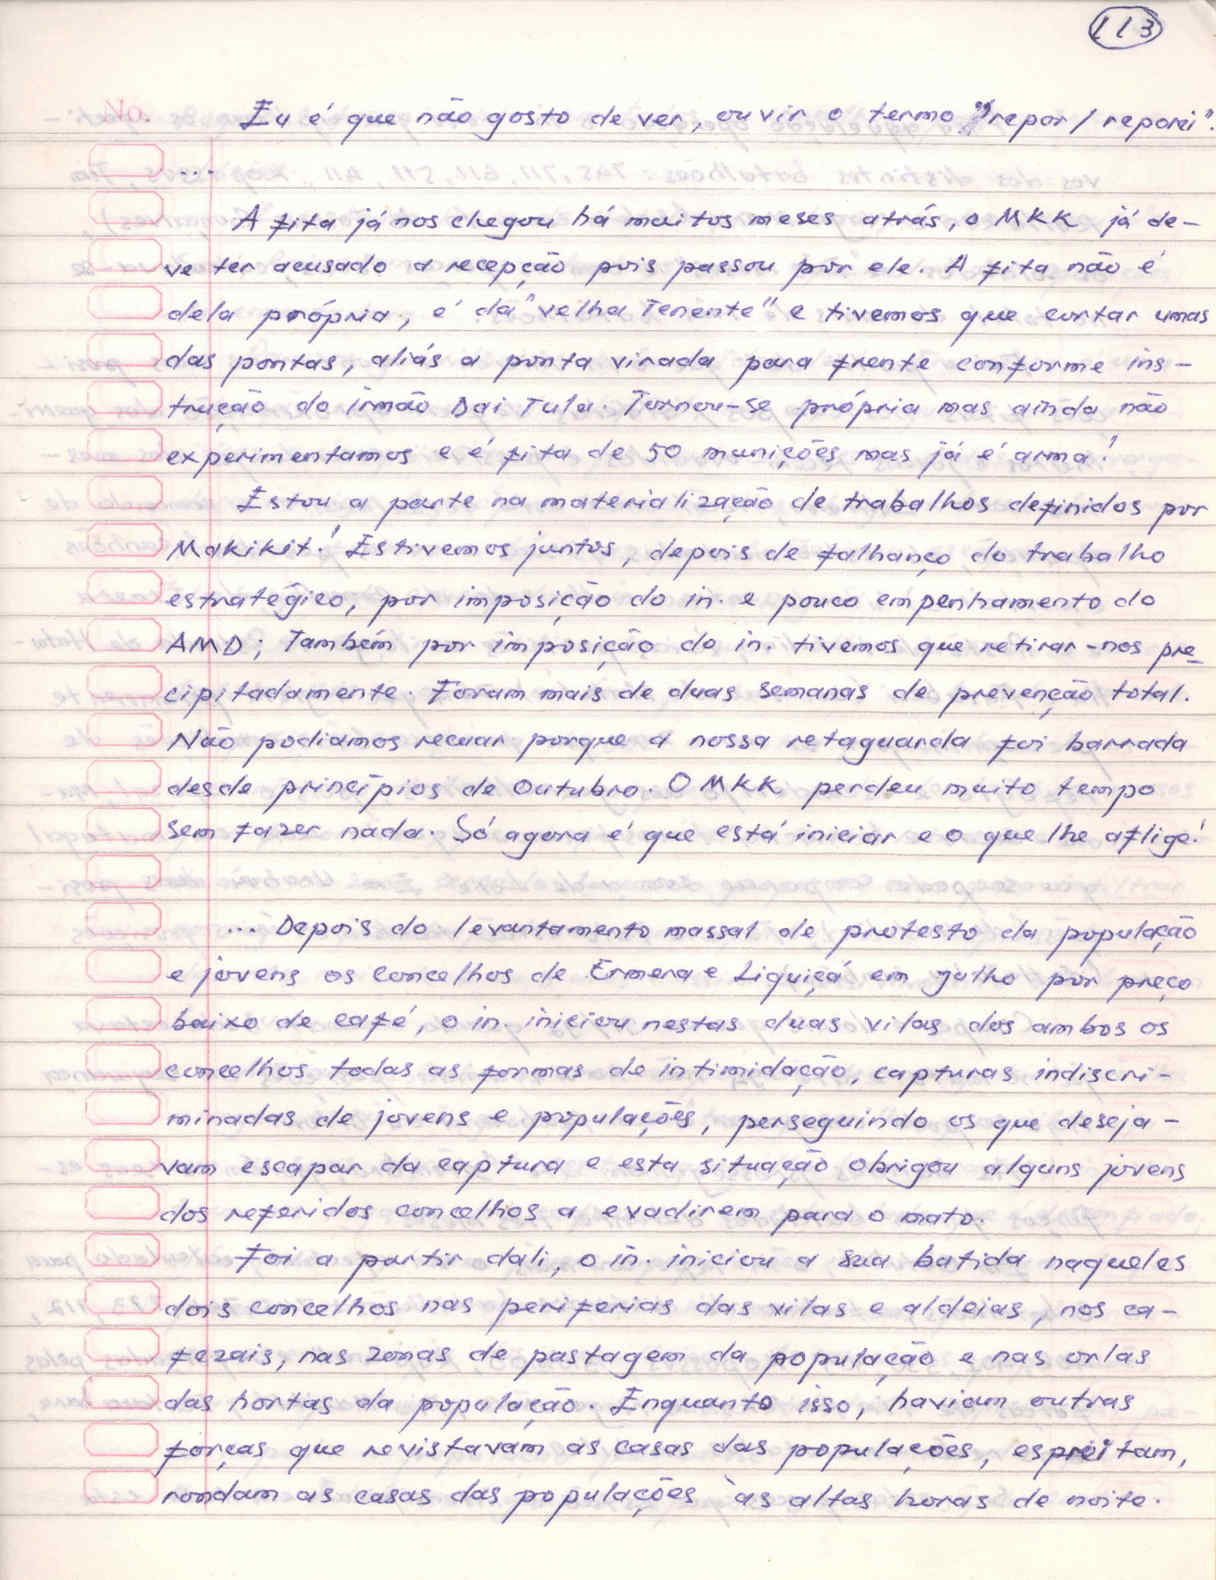 113
No.
Eu é que não gosto de ver, ouvir o termo "repor / reporei".
...
A fita já nos chegou há muitos meses atrás, o MKK já de-
ve ter acusado a recepção pois passou por ele. A fita não é
dela própria, é da "velha Tenente" e tivemos que cortar umas
das pontas, aliás a ponta virada para frente conforme ins-
trução do irmão Dai Tula. Tornou-se própria mas ainda não
experimentamos e é fita de 50 munições mas já é arma!
Estou a parte na materialização de trabalhos definidos por
Makikit! Estivemos juntos, depois de falhanço do trabalho
estratégico, por imposição do in. e pouco empenhamento do
AMD; Também por imposição do in. tivemos que retirar-nos pre-
cipitadamente. Foram mais de duas semanas de prevenção total.
Não podiamos recuar porque a nossa retaguarda foi barrada
desde princípios de Outubro. O MKK perdeu muito tempo
sem fazer nada. Só agora é que está iniciar e o que lhe aflige!
... Depois do levantamento massal de protesto da população
e jovens os concelhos de Ermera e Liquiçá em Julho por preço
baixo de café, o in. iniciou nestas duas vilas dos ambos os
concelhos todas as formas de intimidação, capturas indiscri-
minadas de jovens e populações, perseguindo os que deseja-
vam escapar da captura e esta situação obrigou alguns jovens
dos referidos concelhos a evadirem para o mato.
Foi a partir dali, o in. iniciou a sua batida naqueles
dois concelhos nas periferias das vilas e aldeias, nos ca-
fezais, nas zonas de pastagem da população e nas orlas
das hortas da população. Enquanto isso, haviam outras
forças que revistavam as casas das populações, espreitam,
rondam as casas das populações às altas horas de noite.